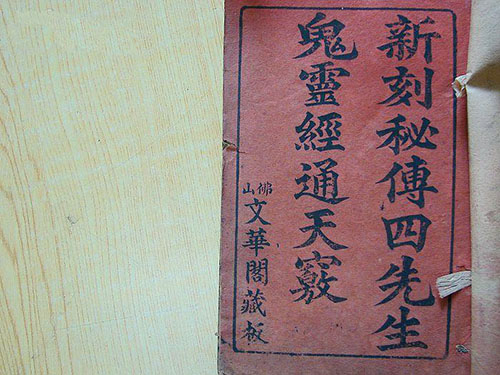 新刻秘傳四先生
鬼靈經通天竅
佛山文華閣藏板